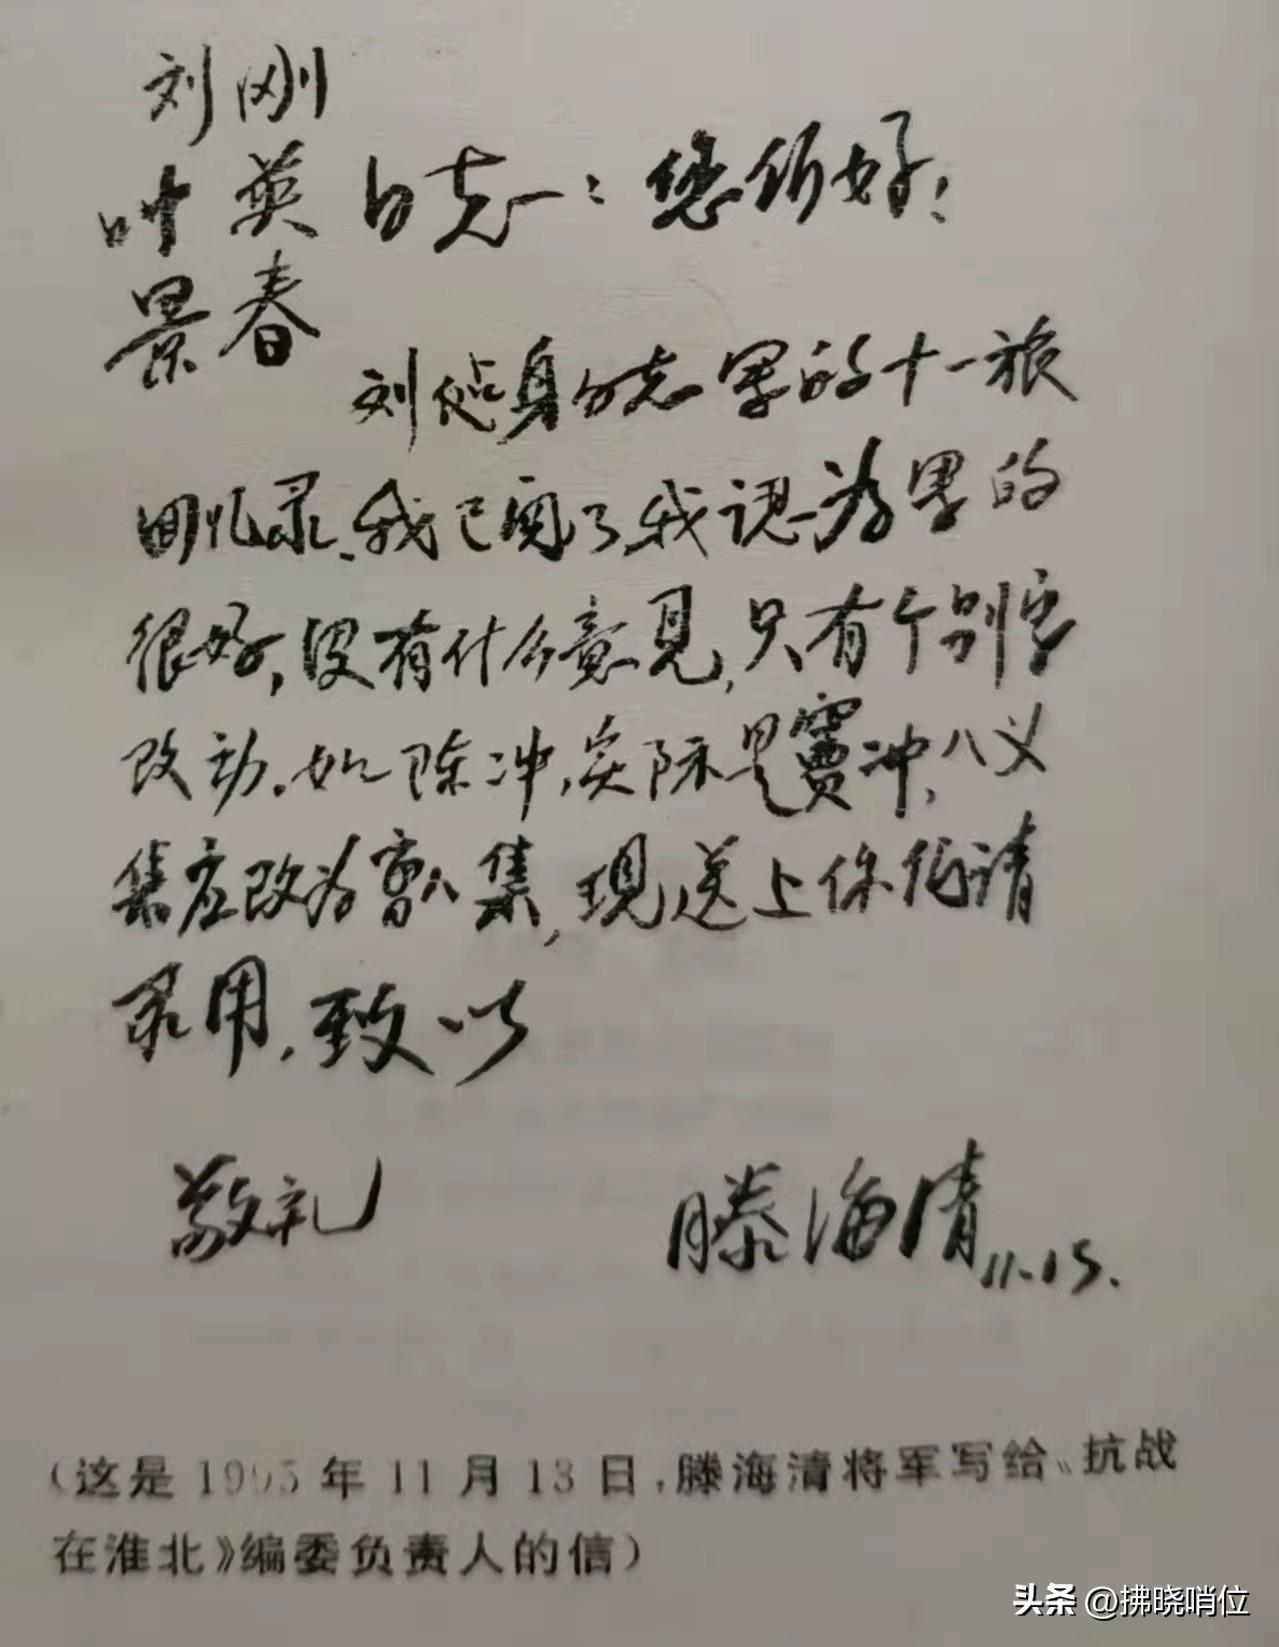 刘刚
叶英 同志：您们好！
景春
刘 身同志写的十一旅
回忆录、我已阅了，我認为写的
很好，没有什么意见，只有个别字
改动。如陈冲，实际是竇冲，八义
集应改为 集，现送上你们请
录用，致以
敬礼
滕海清 11.15.
（这是1995年11月13日，滕海清将军写给《抗战
在淮北》编委负责人的信）
头条 @拂晓哨位